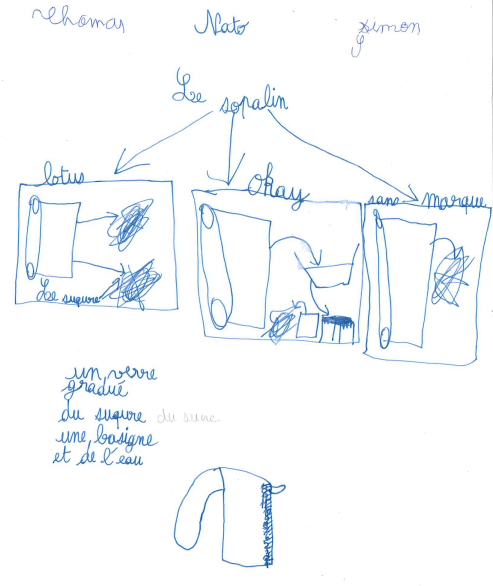 Thomas Nato Simon
Le sopalin
lotus
okay
sans marque
Le suqure
un verre
gradué
du suqure du sucre
une basigne
et de l'eau